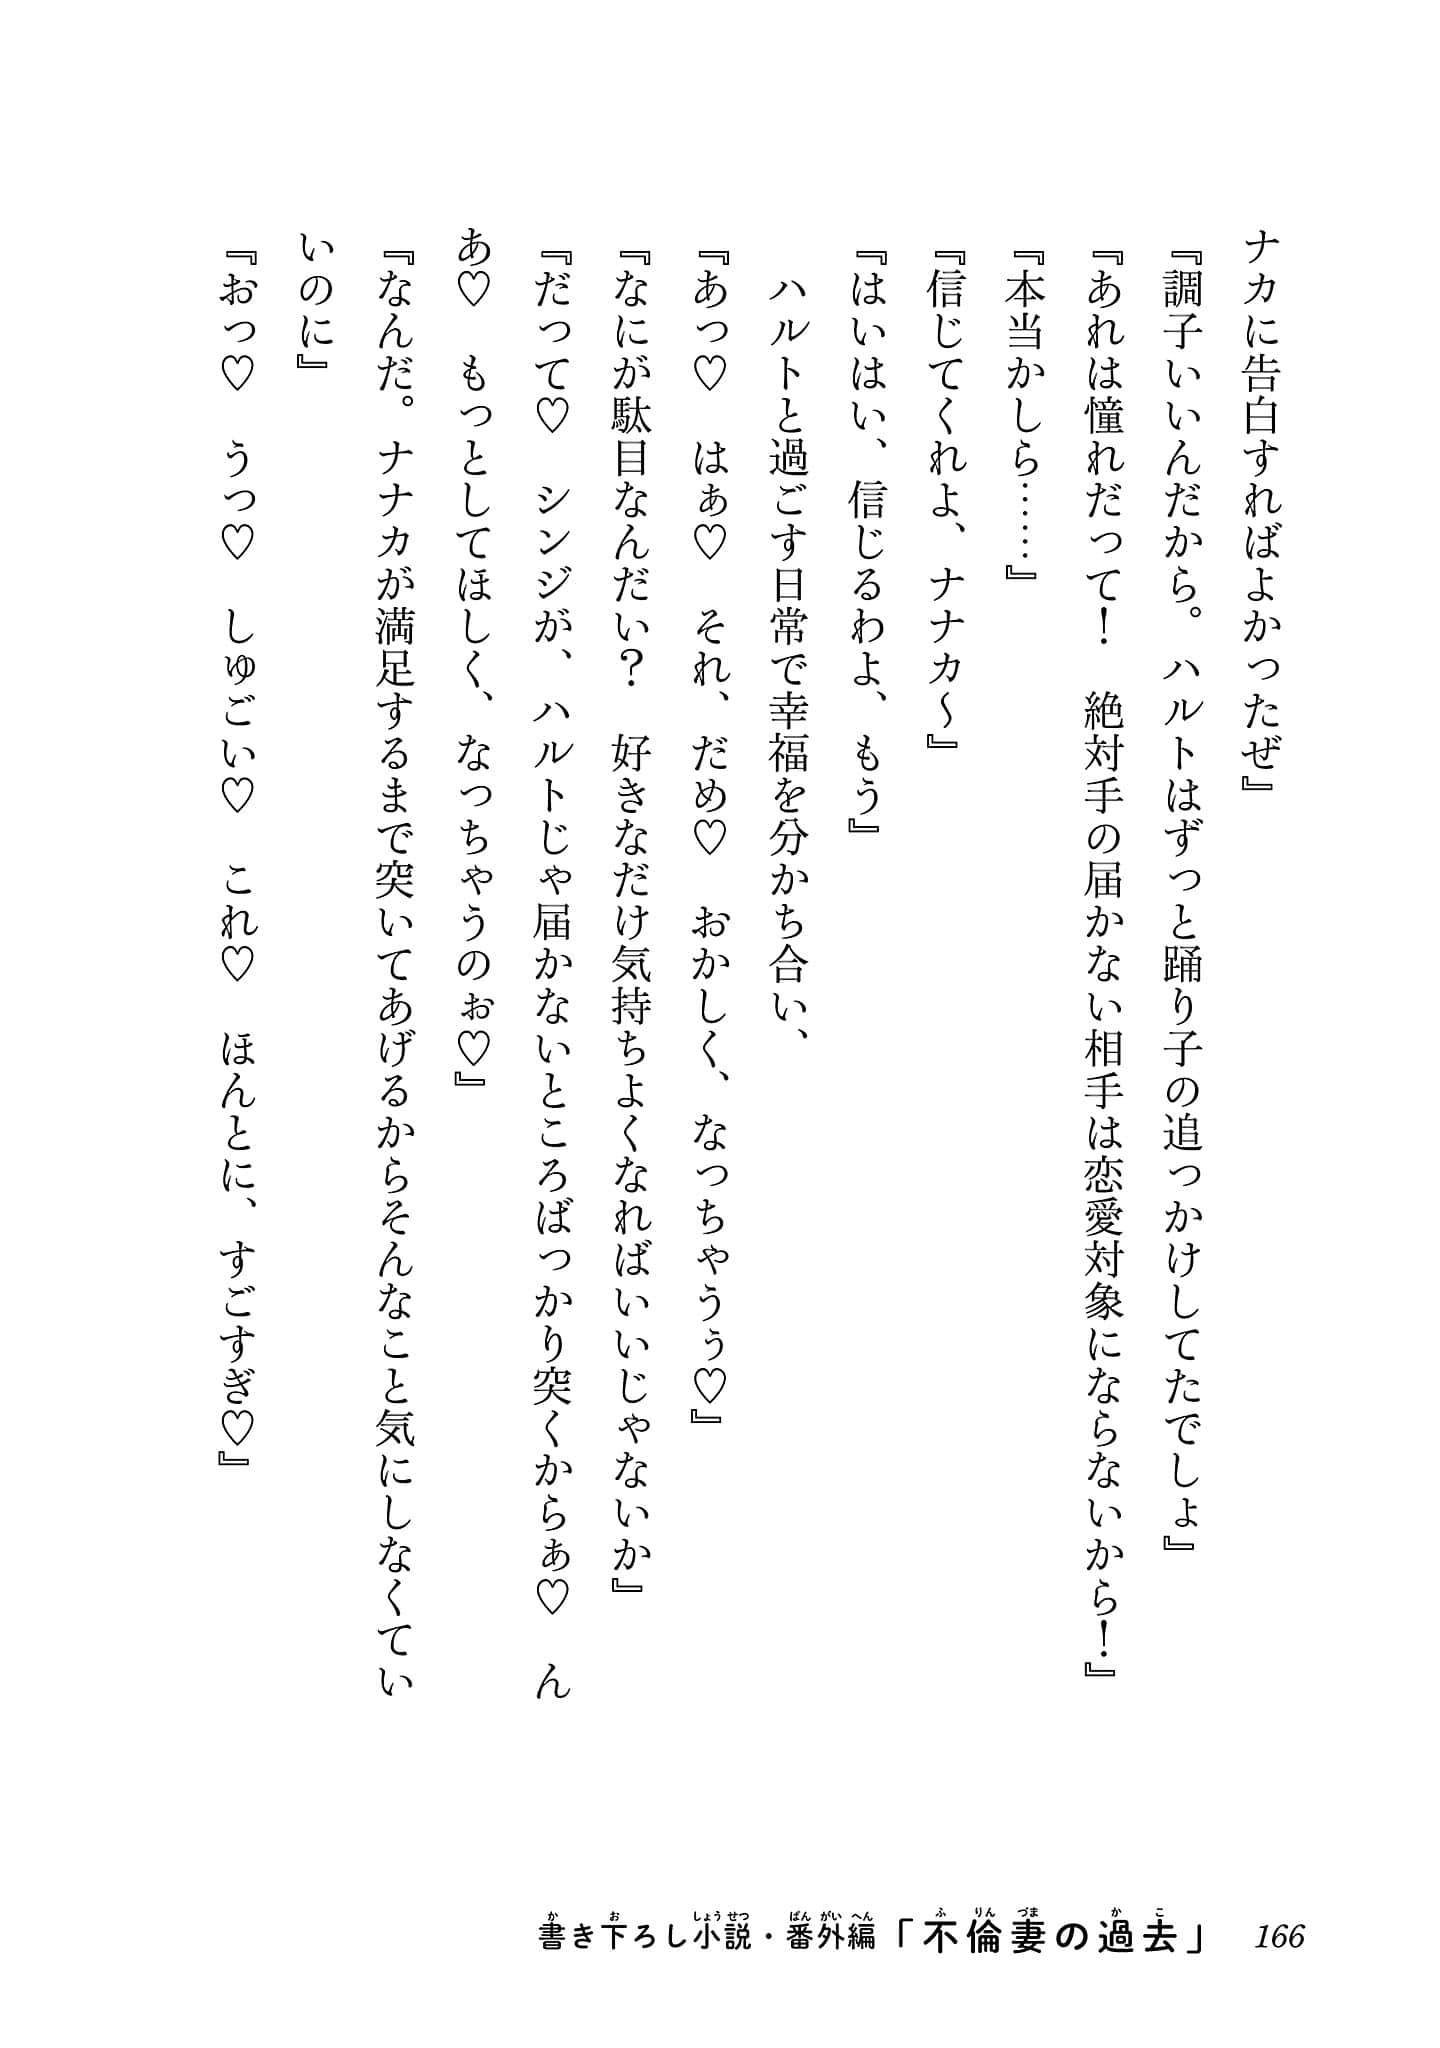 ナカに告白すればよかったぜ』
『調子いいんだから。ハルトはずっと踊り子の追っかけしてたでしょ』
『あれは憧れだって！　絶対手の届かない相手は恋愛対象にならないから！』
『本当かしら……』
『信じてくれよ、ナナカ～』
『はいはい、信じるわよ、もう』
　ハルトと過ごす日常で幸福を分かち合い、
『あっ♡　はぁ♡　それ、だめ♡　おかしく、なっちゃうぅ♡』
『なにが駄目なんだい？　好きなだけ気持ちよくなればいいじゃないか』
『だって♡　シンジが、ハルトじゃ届かないところばっかり突くからぁ♡　ん
あ♡　もっとしてほしく、なっちゃうのぉ♡』
『なんだ。ナナカが満足するまで突いてあげるからそんなこと気にしなくてい
いのに』
『おっ♡　うっ♡　しゅごい♡　これ♡　ほんとに、すごすぎ♡』
書き下ろし小説・番外編「不倫妻の過去」 166